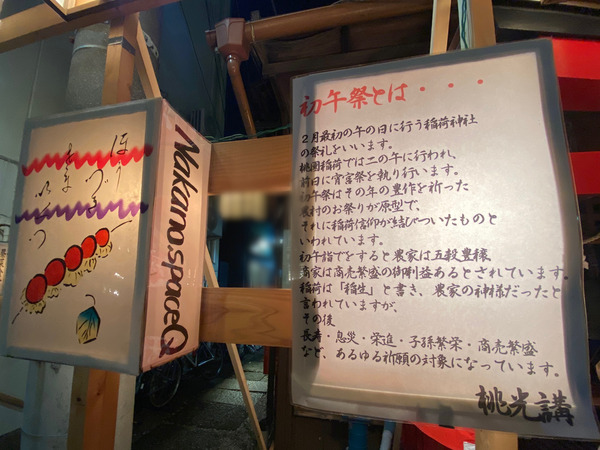 ほうづき
ちょうちん
Nakano.spaceQ
初午祭とは・・・
2月最初の午の日に行う稲荷神社
の祭礼をいいます。
桃園稲荷では二の午に行われ、
前日に宵宮祭を執り行います。
初午祭はその年の豊作を祈った
農村のお祭りが原型で、
それに稲荷信仰が結びついたものと
いわれています。
初午詣でをすると農家は五穀豊穣、
商家は商売繁盛の御利益あるとされています。
稲荷は「稲生」と書き、農家の神様だったと
言われていますが、
その後
長寿・息災・栄進・子孫繁栄・商売繁盛
など、あらゆる祈願の対象になっています。
桃光講